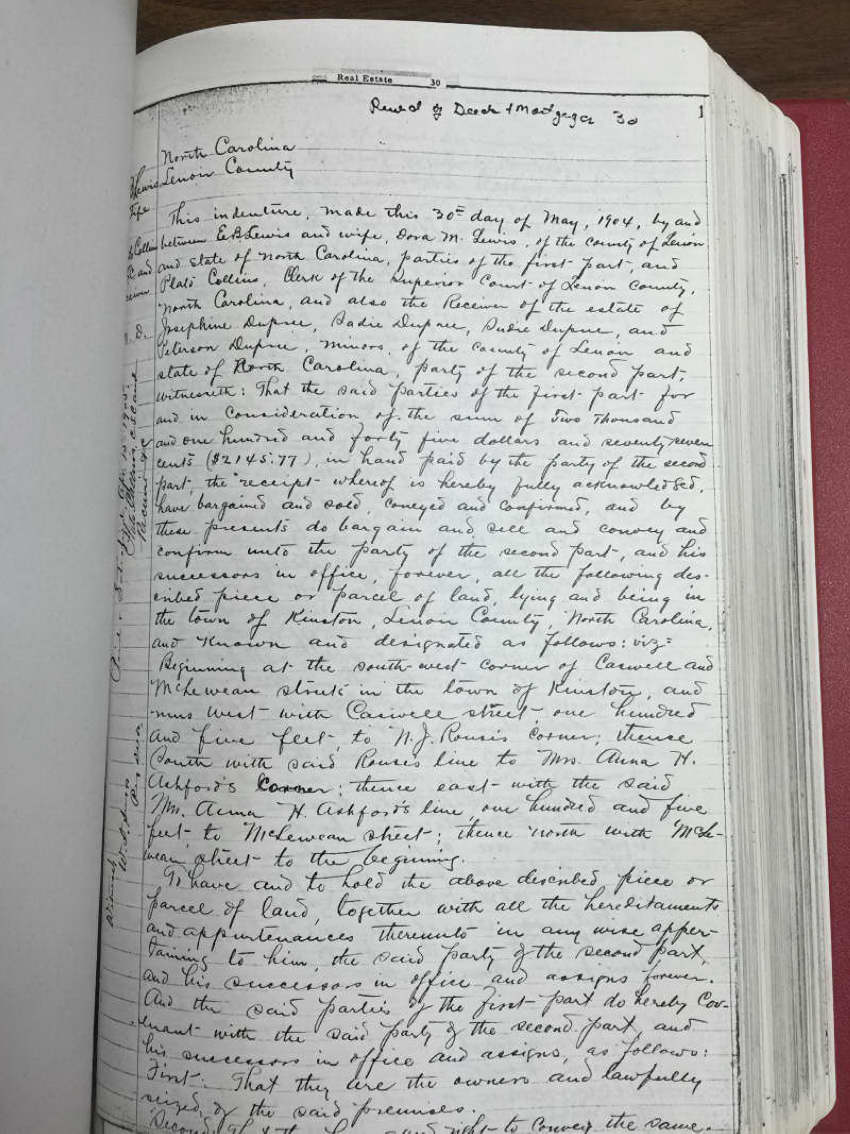 Real Estate 30
Record of Deeds & Mortgages 30
1
North Carolina
Lenoir County
This indenture, made this 30th day of May, 1904, by and
between E.B. Lewis and wife, Dora M. Lewis, of the county of Lenoir
and state of North Carolina, parties of the first part, and
Plato Collins, Clerk of the Superior Court of Lenoir County,
North Carolina, and also the Receiver of the estate of
Josephine Dupree, Sadie Dupree, Susie Dupree, and
Peterson Dupree, minors, of the county of Lenoir and
state of North Carolina, party of the second part,
witnesseth: That the said parties of the first part for
and in consideration of the sum of Two Thousand
and one hundred and forty five dollars and seventy seven
cents ($2145.77), in hand paid by the party of the second
part, the receipt whereof is hereby fully acknowledged,
have bargained and sold, conveyed and confirmed, and by
these presents do bargain and sell and convey and
confirm unto the party of the second part, and his
successors in office, forever, all the following des-
cribed piece or parcel of land, lying and being in
the town of Kinston, Lenoir County, North Carolina,
and known and designated as follows: viz=
Beginning at the south-west corner of Caswell and
McLewean streets in the town of Kinston, and
runs West with Caswell street, one hundred
and five feet, to N.J. Rouse's corner; thence
South with said Rouse's line to Mrs. Anna H.
Ashford's corner; thence east with the said
Mrs. Anna H. Ashford's line, one hundred and five
feet, to McLewean street; thence north with McLe-
wean street to the beginning.
To have and to hold the above described piece or
parcel of land, together with all the hereditaments
and appurtenances thereunto in any wise apper-
taining to him, the said party of the second part,
and his successors in office and assigns forever.
And the said parties of the first part do hereby Cov-
enant with the said party of the second part, and
his successors in office and assigns, as follows:
First: That they are the owners and lawfully
seized of the said premises.
Second: That they have and right to convey the same.